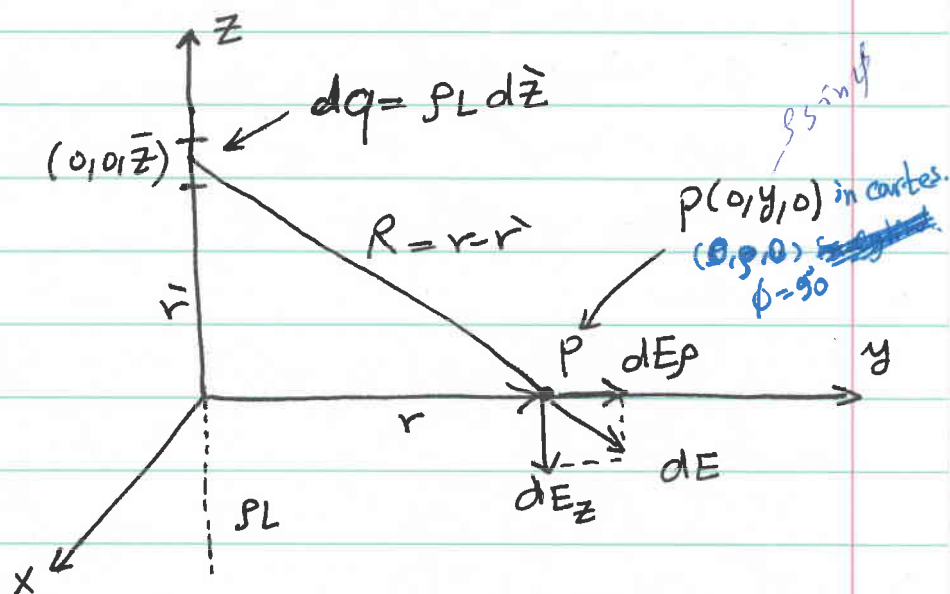 z
dq = ρL dz̀
(0,0,z̄)
ρ sin φ
P(0,y,0) in cartes.
(0,ρ,0)
φ=90
R = r-r̀
r̀
P
dEρ
y
r
dE
dEz
ρL
x